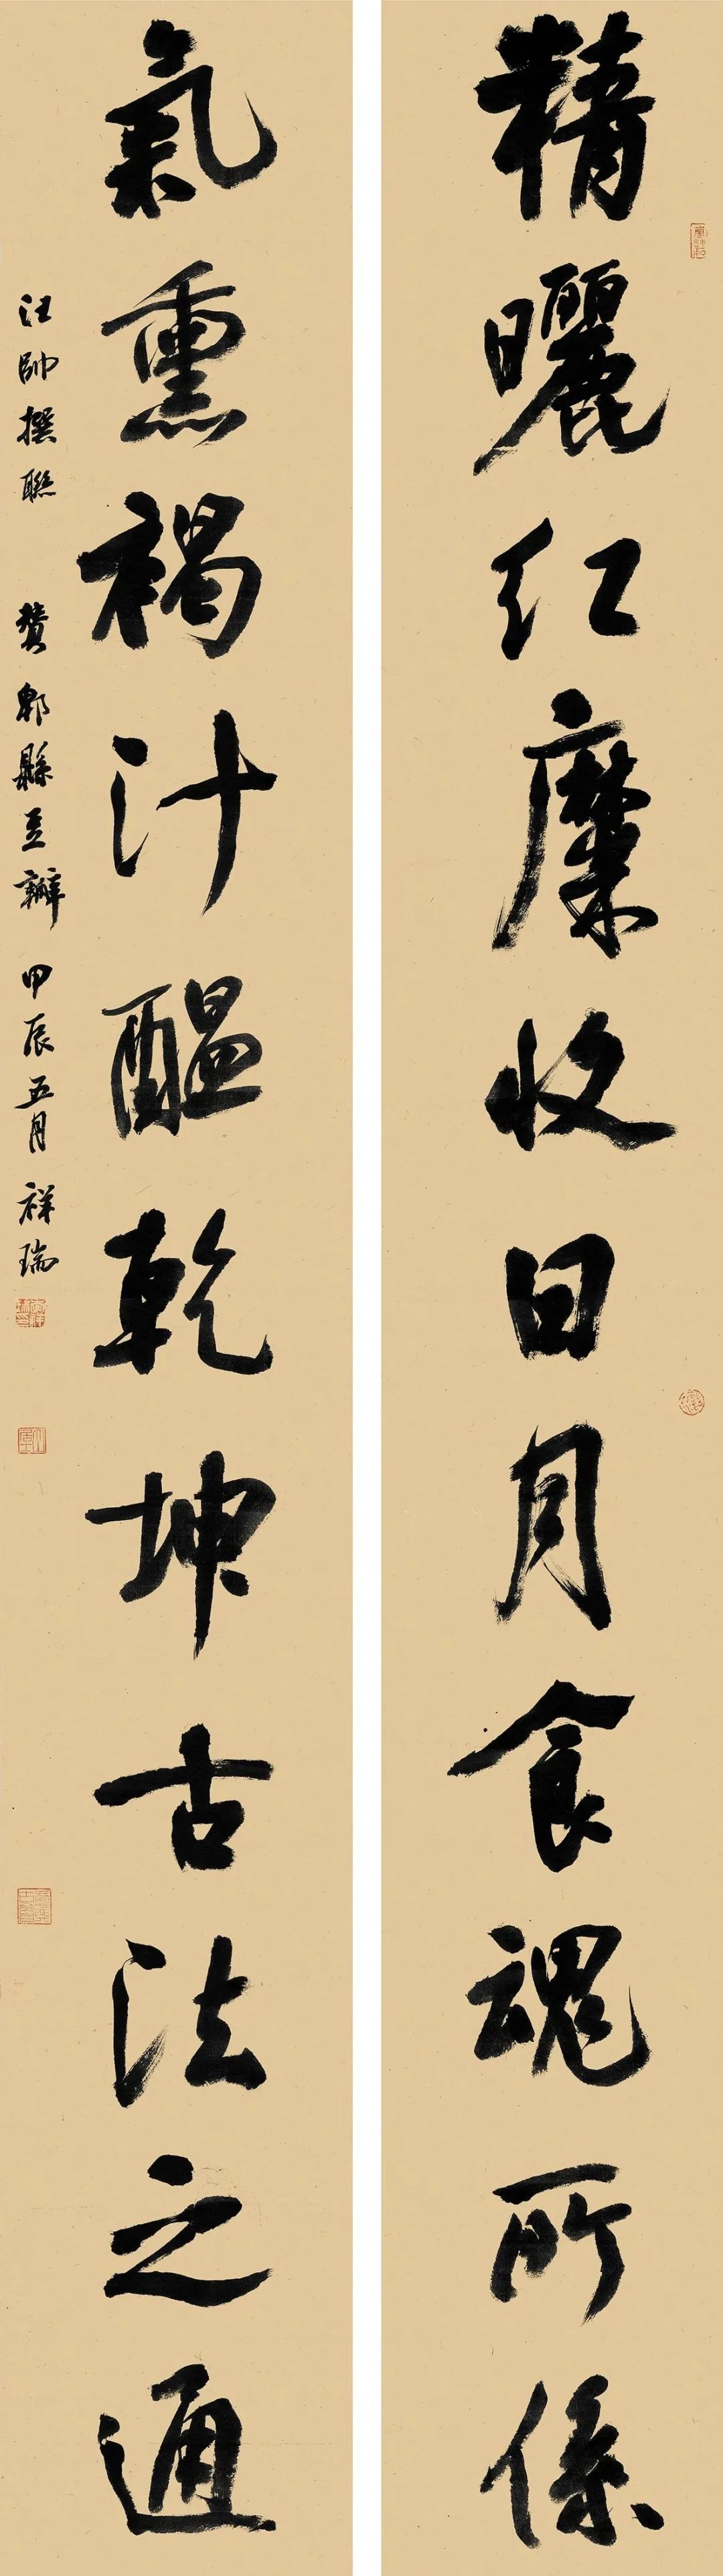 精曬红糜收日月食魂所係
氣熏褐汁醖乾坤古法之通
汪帥撰聯 贊郫縣豆瓣 甲辰五月 祥瑞